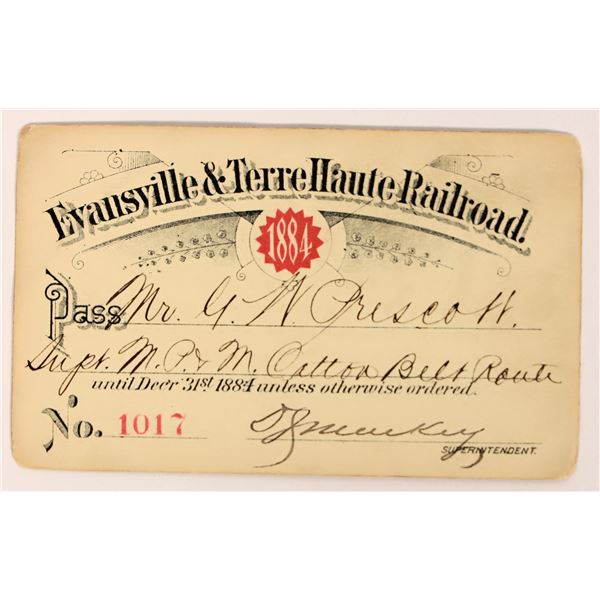 Evansville & Terre Haute Railroad.
1884
Pass Mr. G. W. Prescott.
Supt. M. P. & M. Cotton Belt Route
until Decr 31st 1884 unless otherwise ordered.
No. 1017
SUPERINTENDENT.